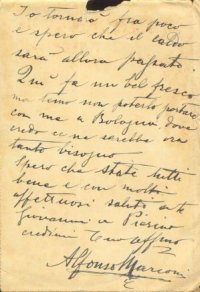 Io tornerò fra poco
e spero che il caldo
sarà allora passato.
Qui fa un bel fresco
ma temo non poterlo portare
con me a Bologna dove
credo ce ne sarebbe ora
tanto bisogno
Spero che state tutti
bene e con molti
affettuosi saluti a te
Giovanni e Pierino
credimi tuo affmo
Alfonso Marconi